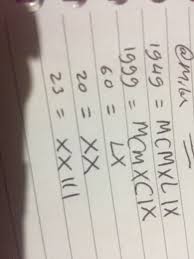 1949 = MCMXLIX
1999 = MCMXCIX
60 = LX
20 = XX
23 = XXIII